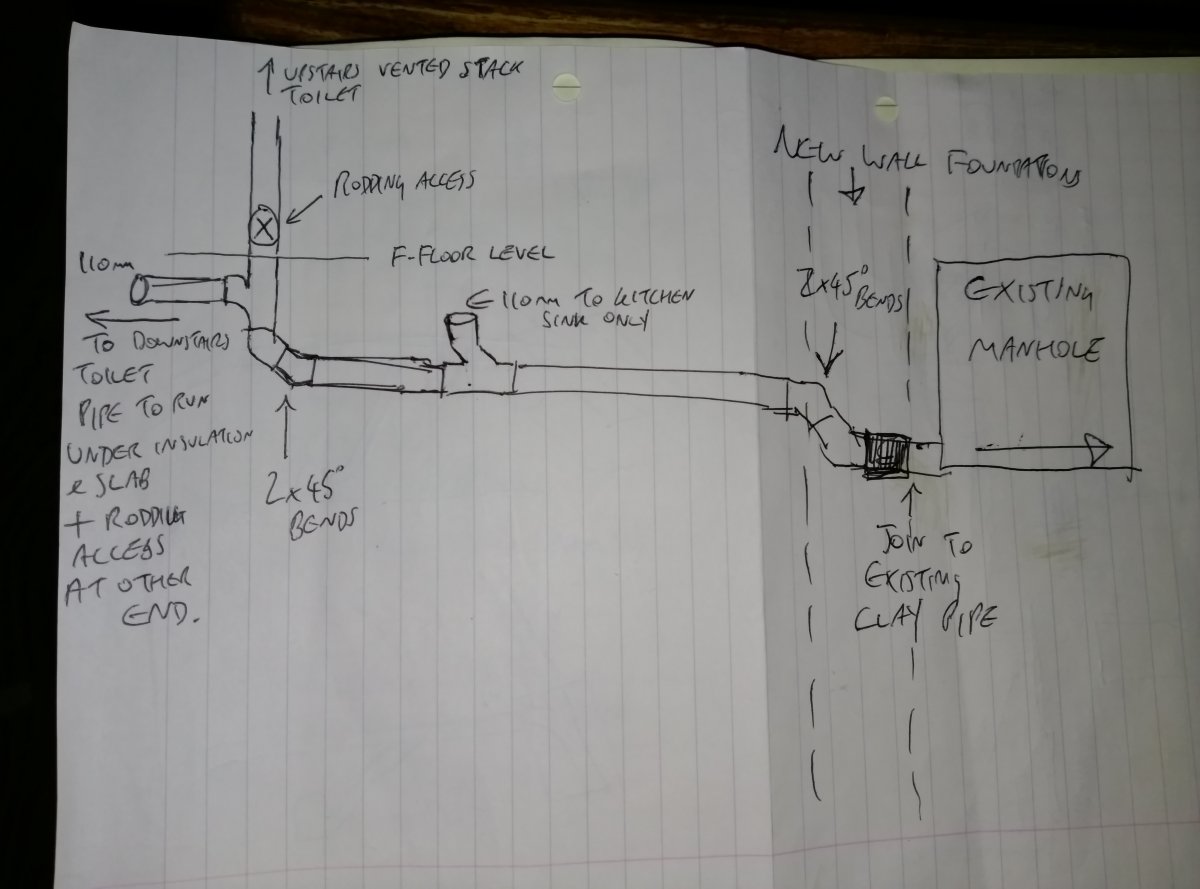 ↑ UPSTAIRS VENTED STACK
TOILET
RODDING ACCESS
X
F-FLOOR LEVEL
110mm
← 110mm TO KITCHEN
SINK ONLY
TO DOWNSTAIRS
TOILET
PIPE TO RUN
UNDER INSULATION
& SLAB
+ RODDING
ACCESS
AT OTHER
END.
2x45°
BENDS
NEW WALL FOUNDATIONS
2x45°
BENDS
EXISTING
MANHOLE
JOIN TO
EXISTING
CLAY PIPE